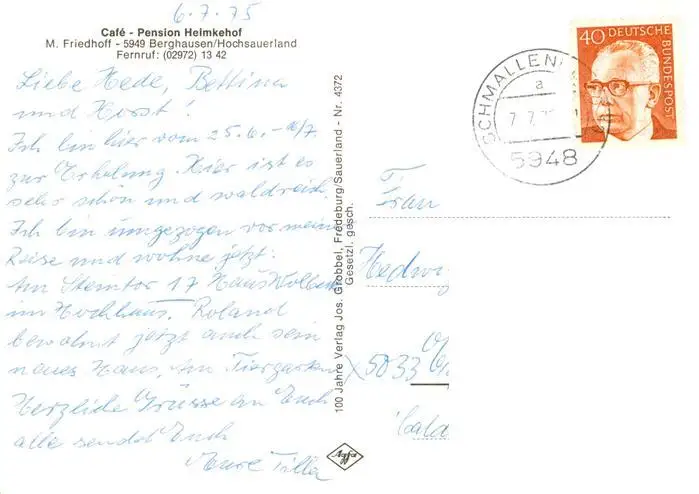 6.7.75
Café - Pension Heimkehof
M. Friedhoff - 5949 Berghausen/Hochsauerland
Fernruf: (02972) 13 42
Liebe Hede, Bettina
und Horst!
Ich bin hier vom 25.6.-16/7
zur Erholung. Hier ist es
sehr schön und waldreich.
Ich bin umgezogen vor meine
Reise und wohne jetzt:
Am Steintor 17 Haus
im Hochhaus. Roland
bewohnt jetzt auch sein
neues Haus, Am Tiergarten
Herzliche Grüsse an Euch
alle sendet Euch
Eure Tilla
100 Jahre Verlag Jos. Grobbel, Fredeburg/Sauerland - Nr. 4372
Gesetzl. gesch.
Agfa
40 DEUTSCHE BUNDESPOST
SCHMALLEN
a
7.7.75
5948
Frau
Hedwig
5033